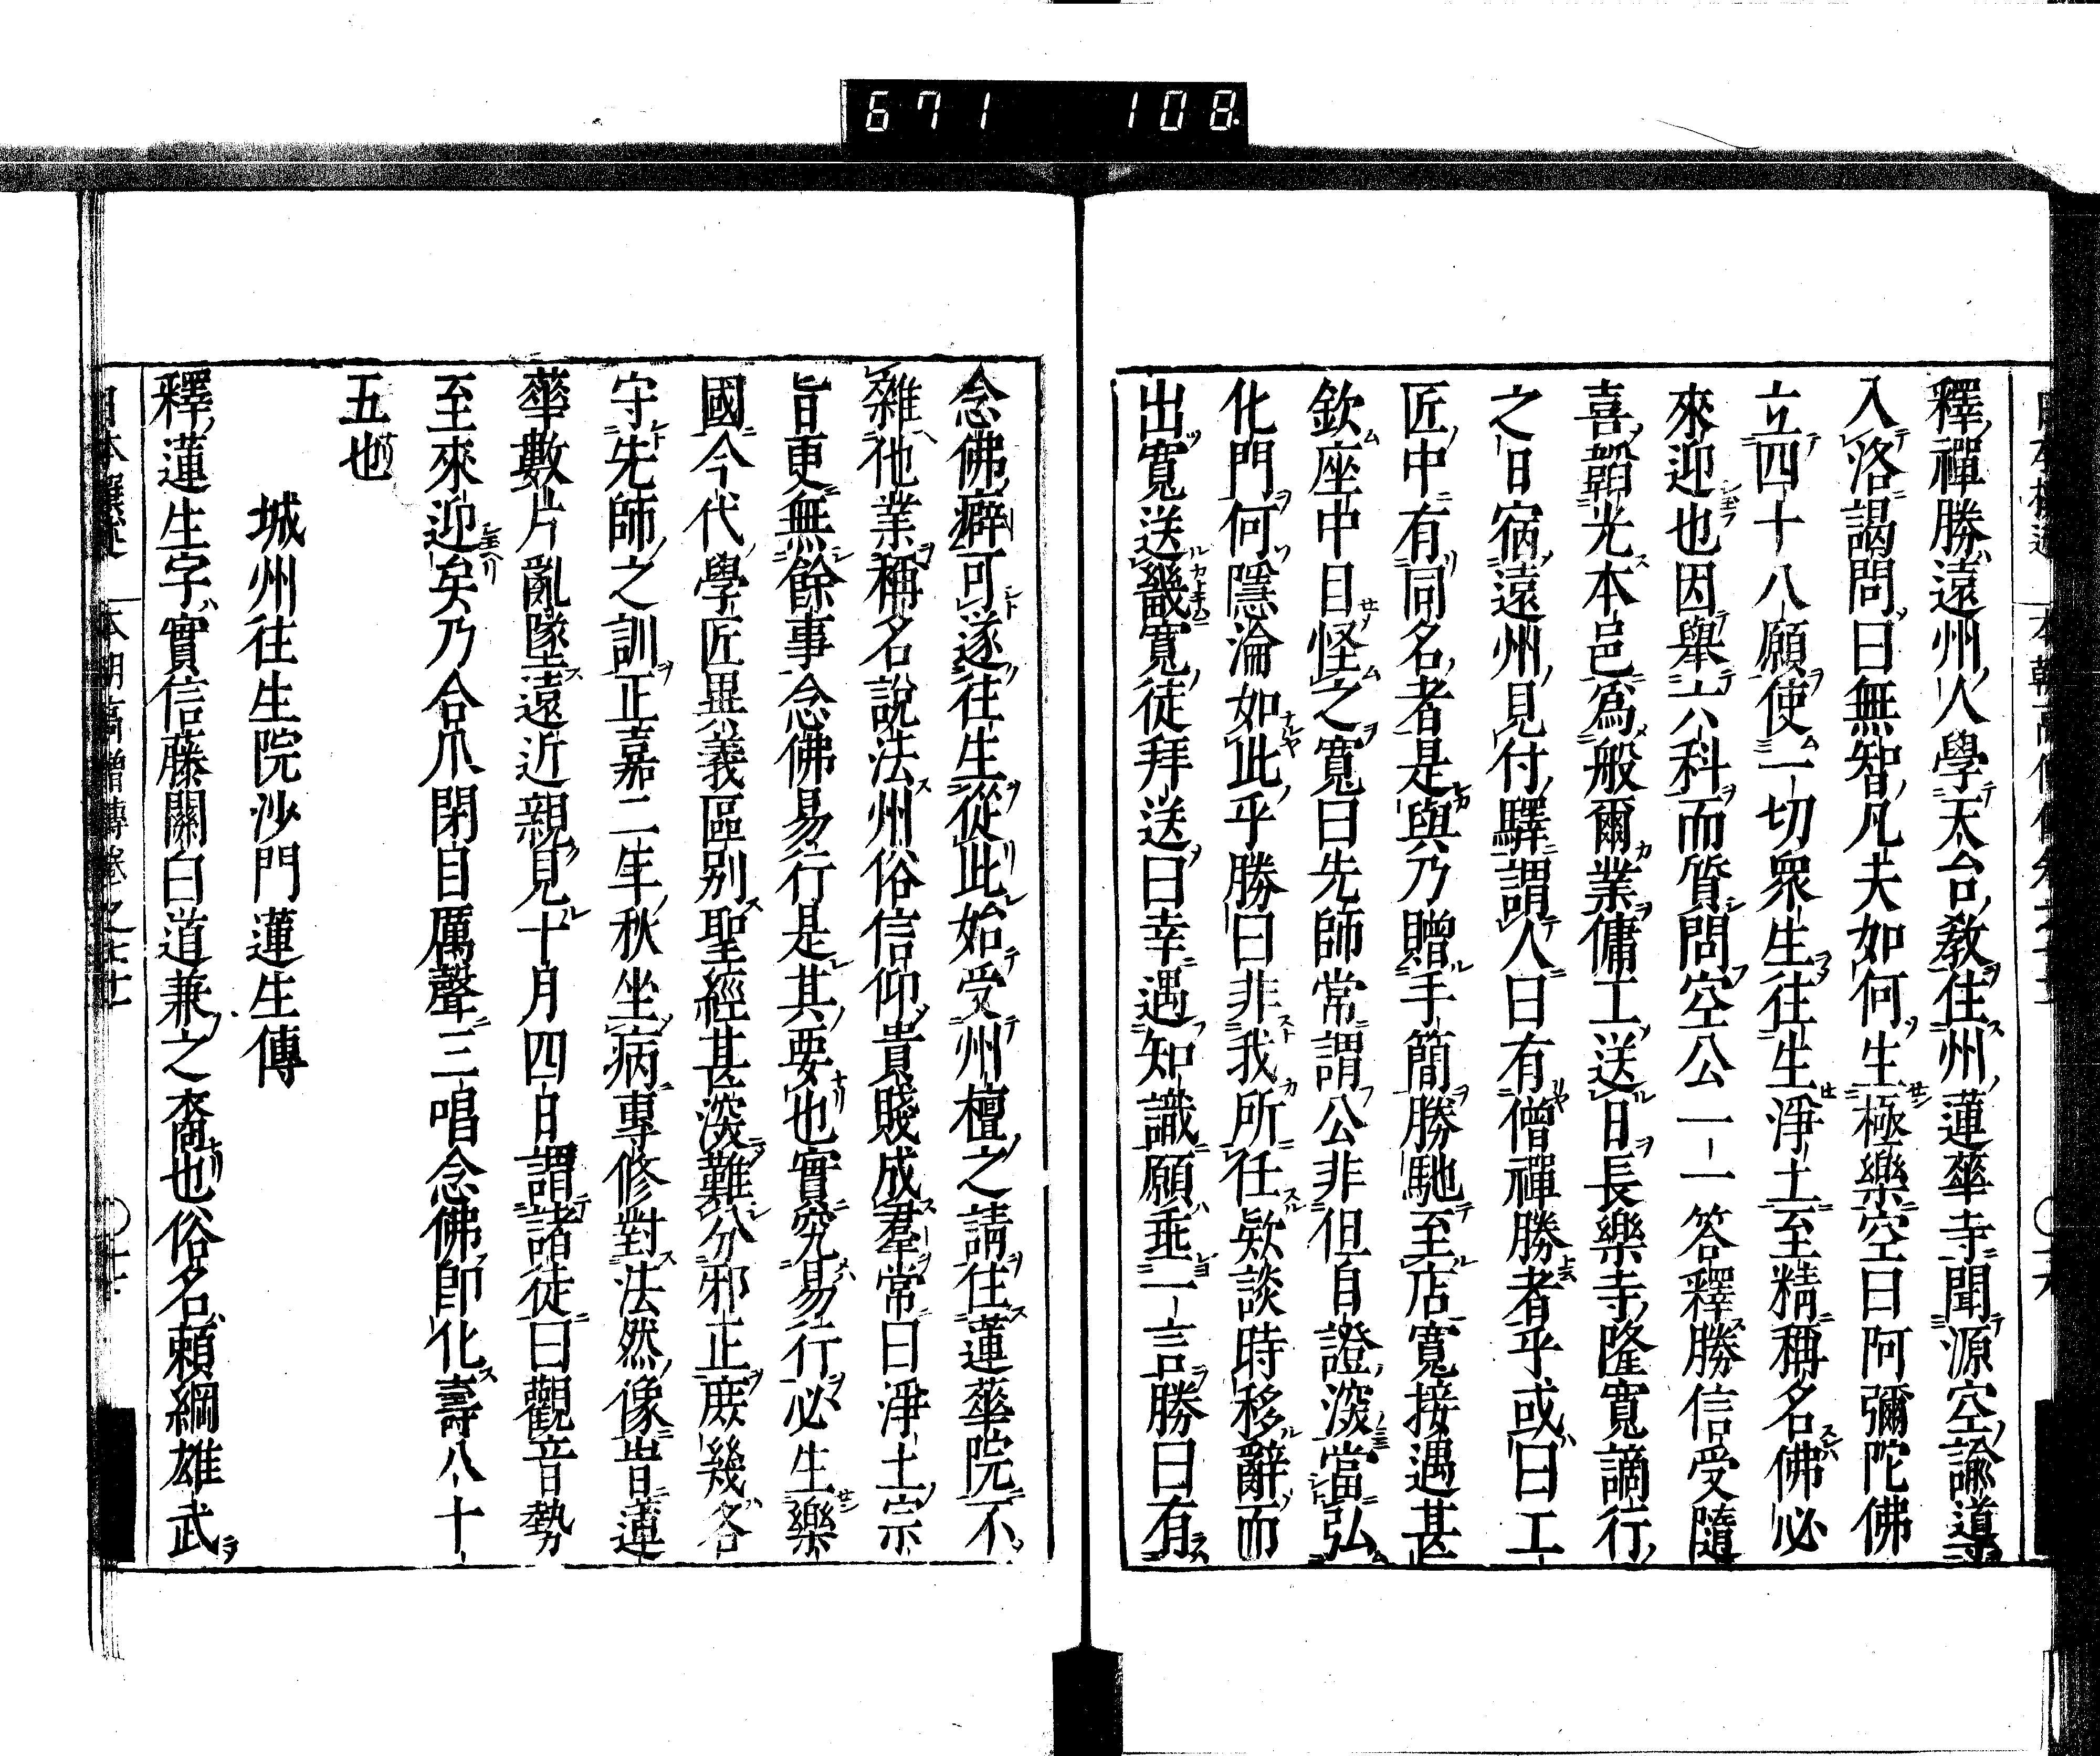 671 108
釋禪勝遠州人學天台教住州蓮華寺聞源空諭導
入洛謁問曰無智凡夫如何生極樂空曰阿彌陀佛
立四十八願使一切眾生往生淨土至精稱名佛必
來迎也因舉六八科而質問空公一一答釋勝信受隨
喜韜光本邑為般爾業傭工送日長樂寺隆寬謫行
之日宿遠州見付驛謂人曰有僧禪勝者乎或曰工
匠中有同名者是與乃贈手簡勝馳至店寬接遇甚
欽座中目怪之寬曰先師常謂公非但自證深當弘
化門何隱淪如此乎勝曰非我所任欵談時移辭而
出寬送畿寬徒拜送曰幸遇知識願垂一言勝曰有
念佛癖可遂往生從此始受州檀之請住蓮華院不
雜他業稱名說法州俗信仰貴賤成羣常曰淨土宗
旨更無餘事念佛易行是其要也實究易行必生樂
國今代學匠異義區別聖經甚深難分邪正庶幾各
守先師之訓正嘉二年秋坐病專修對法然像皆蓮
華數片亂墜遠近親見十月四日謂諸徒曰觀音勢
至來迎矣乃合爪閉目厲聲三唱念佛即化壽八十
五也
城州往生院沙門蓮生傳
釋蓮生字實信藤關白道兼之裔也俗名賴綱雄武